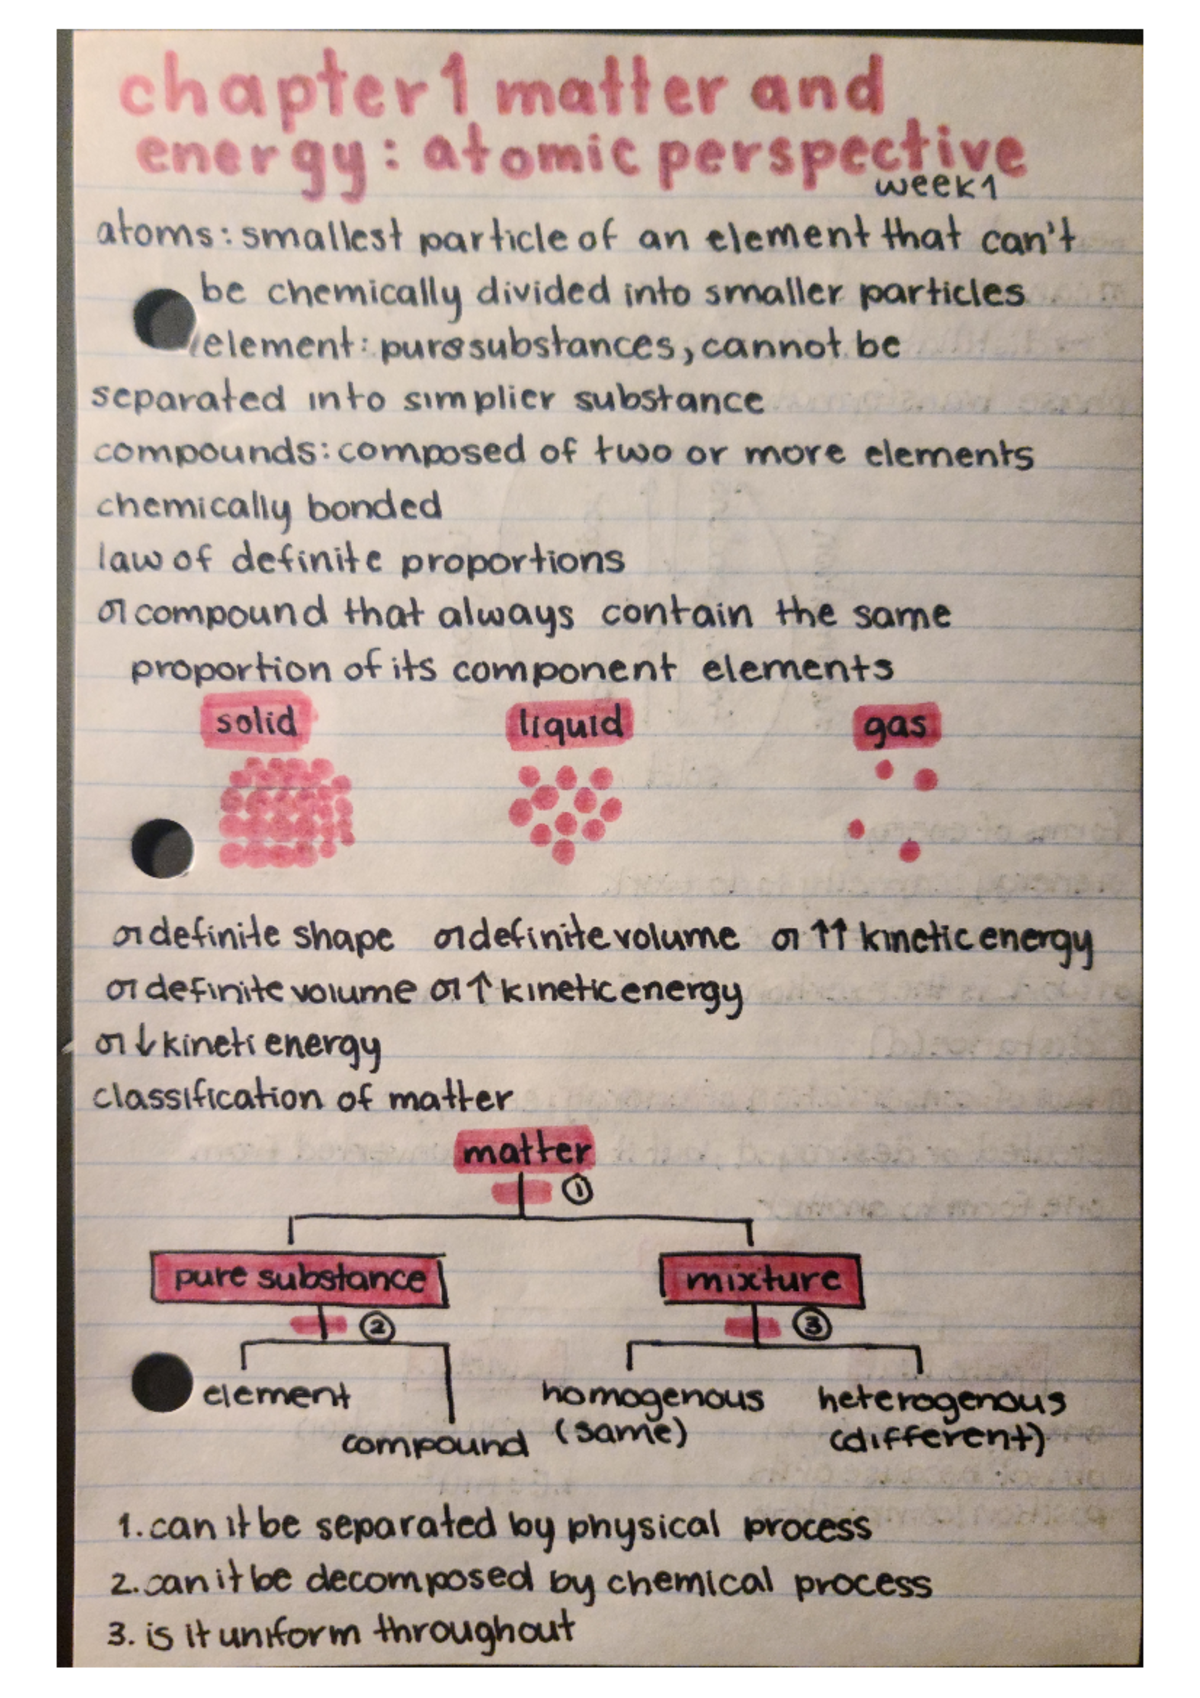 chapter 1 matter and
energy: atomic perspective
week 1
atoms: smallest particle of an element that can't
be chemically divided into smaller particles
element: pure substances, cannot be
separated into simplier substance
compounds: composed of two or more elements
chemically bonded
law of definite proportions
compound that always contain the same
proportion of its component elements
solid liquid gas
definite shape definite volume ↑↑ kinetic energy
definite volume ↑ kinetic energy
↓ kineti energy
classification of matter
matter
①
pure substance mixture
② ③
element homogenous heterogenous
compound (same) (different)
1. can it be separated by physical process
2. can it be decomposed by chemical process
3. is it uniform throughout